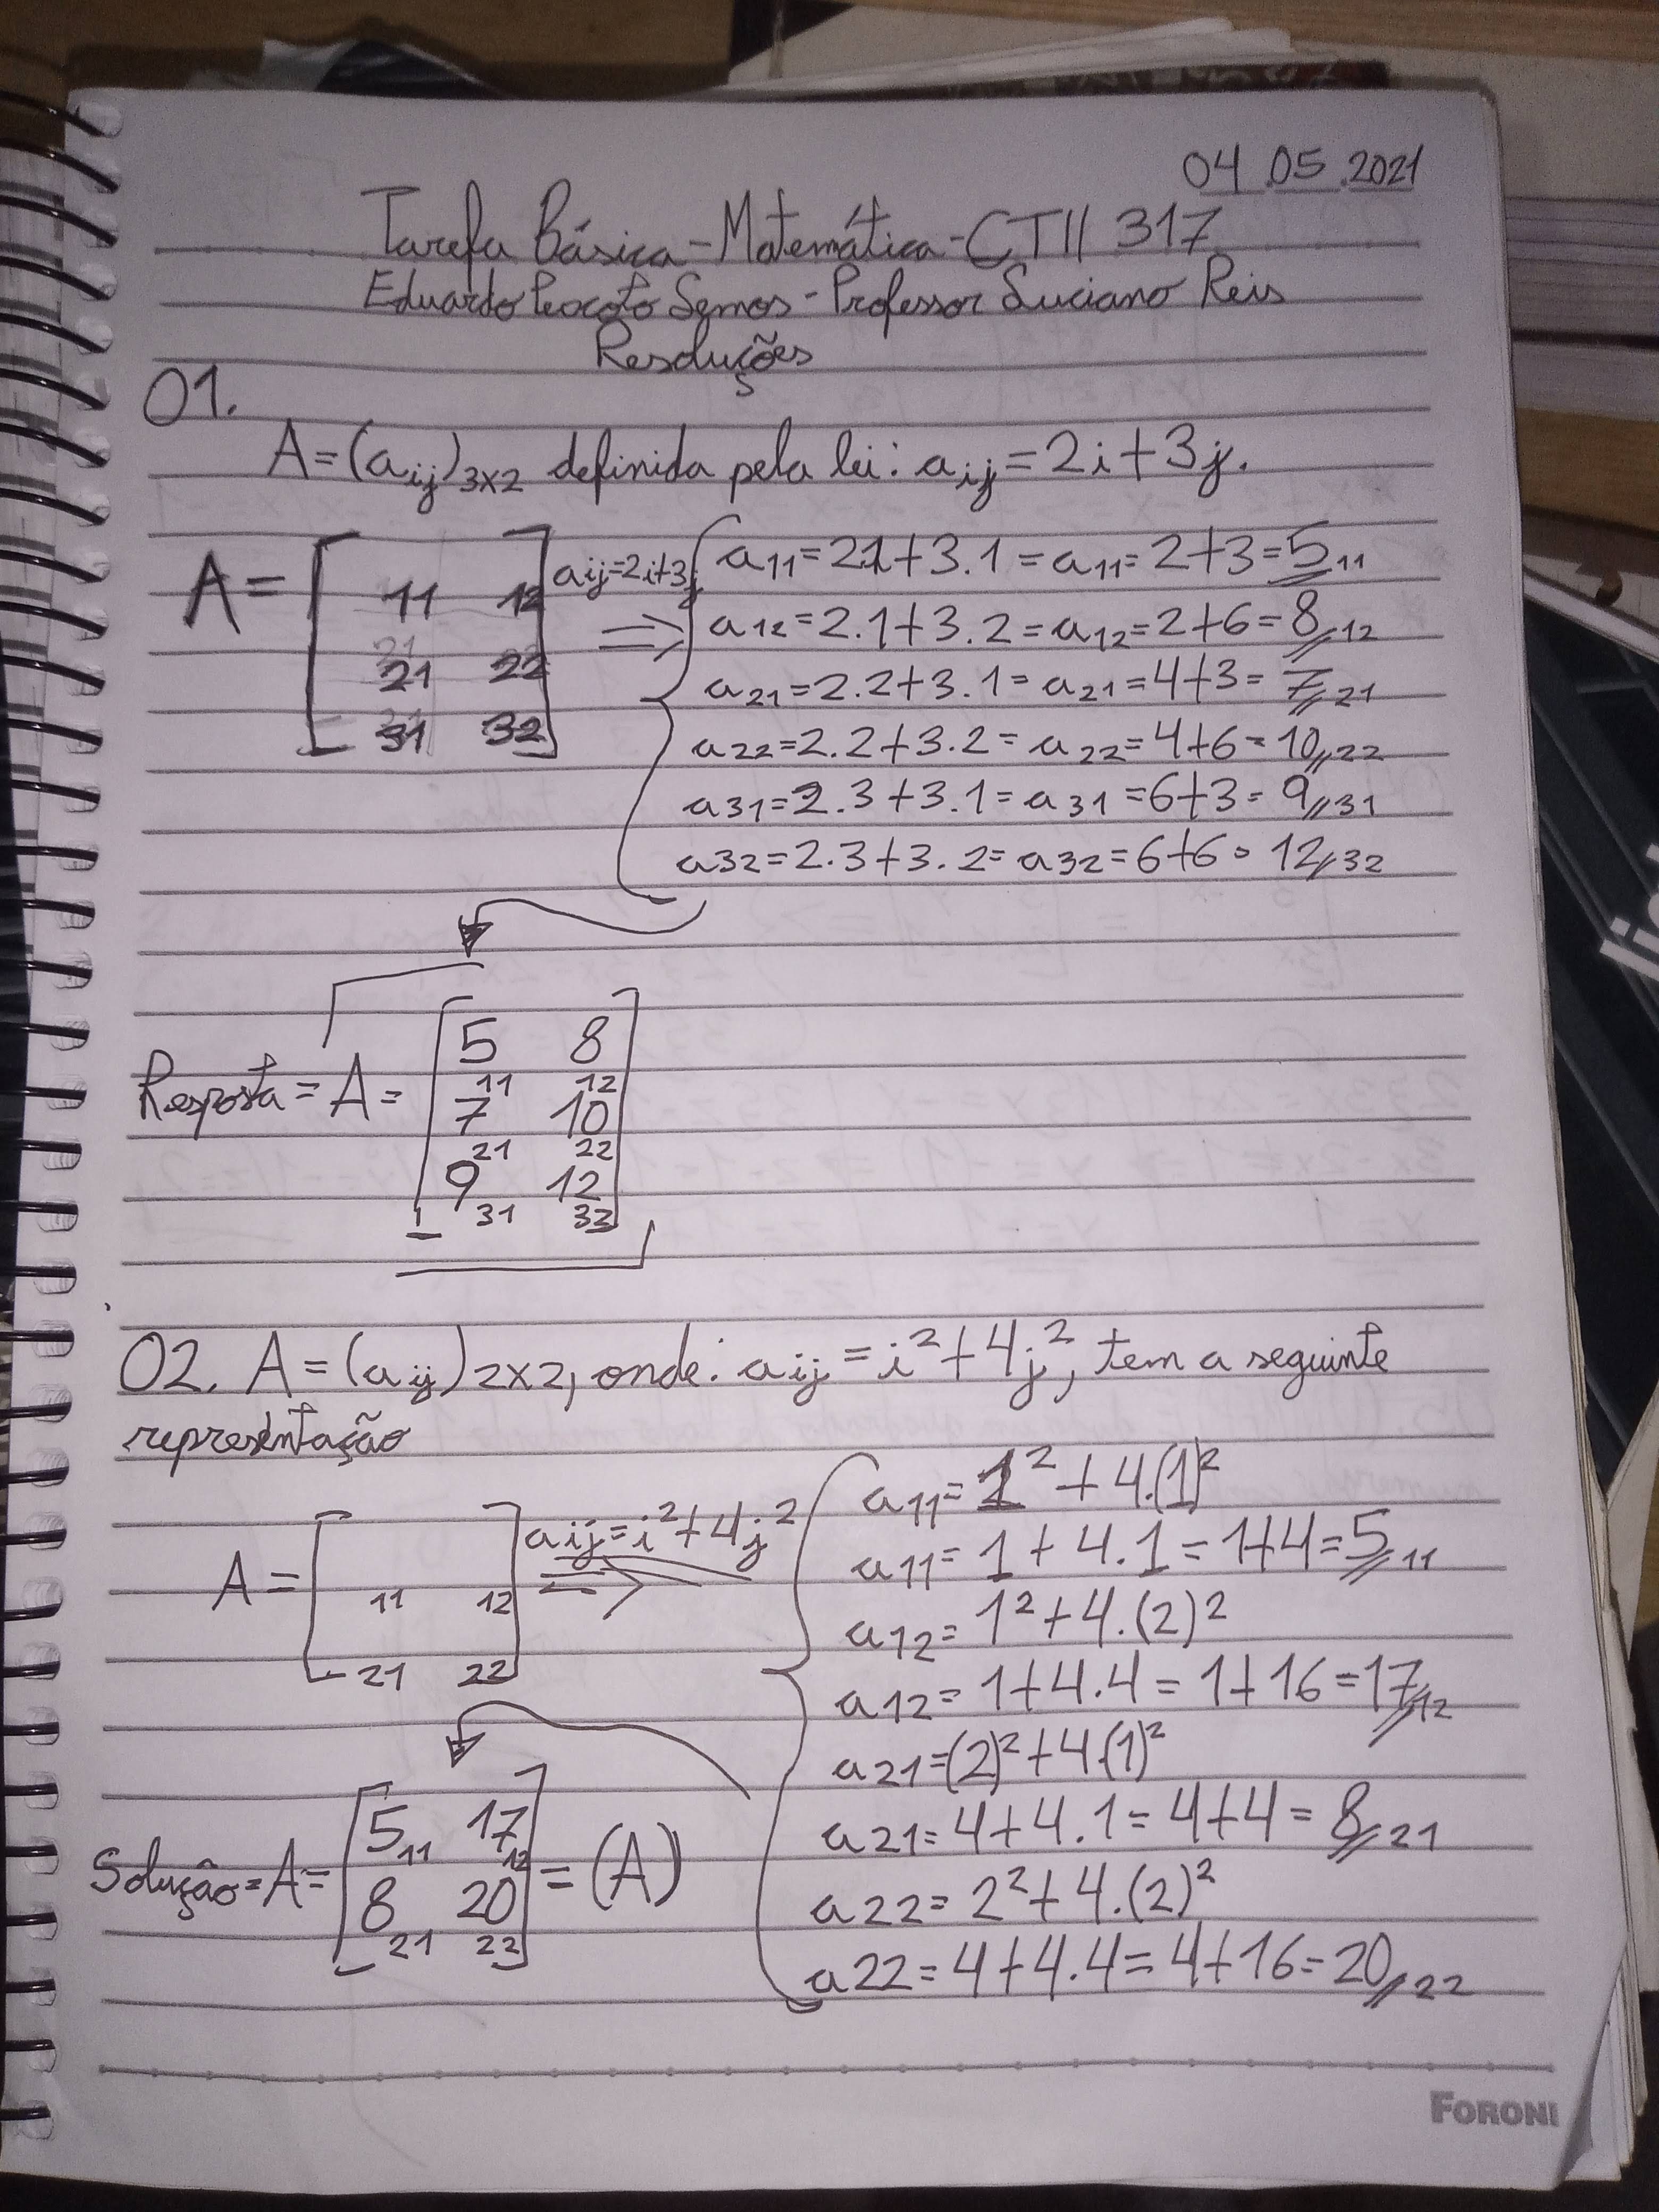 04.05.2021
Tarefa Básica - Matemática - CTII 317
Eduardo Peixoto - Professor Luciano Reis
Resoluções
01.
A=(aij)3x2 definida pela lei: aij=2i+3j.
A= [11 12
21 22
31 32]
aij=2i+3j
=>
a11=2.1+3.1=a11=2+3=5//11
a12=2.1+3.2=a12=2+6=8//12
a21=2.2+3.1=a21=4+3=7//21
a22=2.2+3.2=a22=4+6=10//22
a31=2.3+3.1=a31=6+3=9//31
a32=2.3+3.2=a32=6+6=12//32
Resposta=A=
[5 11 8 12
7 21 10 22
9 31 12 32]
02. A=(aij)2x2, onde: aij=i²+4j², tem a seguinte
representação
A= [11 12
21 22]
aij=i²+4j²
=>
a11=1²+4.(1)²
a11=1+4.1=1+4=5//11
a12=1²+4.(2)²
a12=1+4.4=1+16=17//12
a21=(2)²+4.(1)²
a21=4+4.1=4+4=8//21
a22=2²+4.(2)²
a22=4+4.4=4+16=20//22
Solução=A= [5 11 17 12
8 21 20 22] = (A)
FORONI